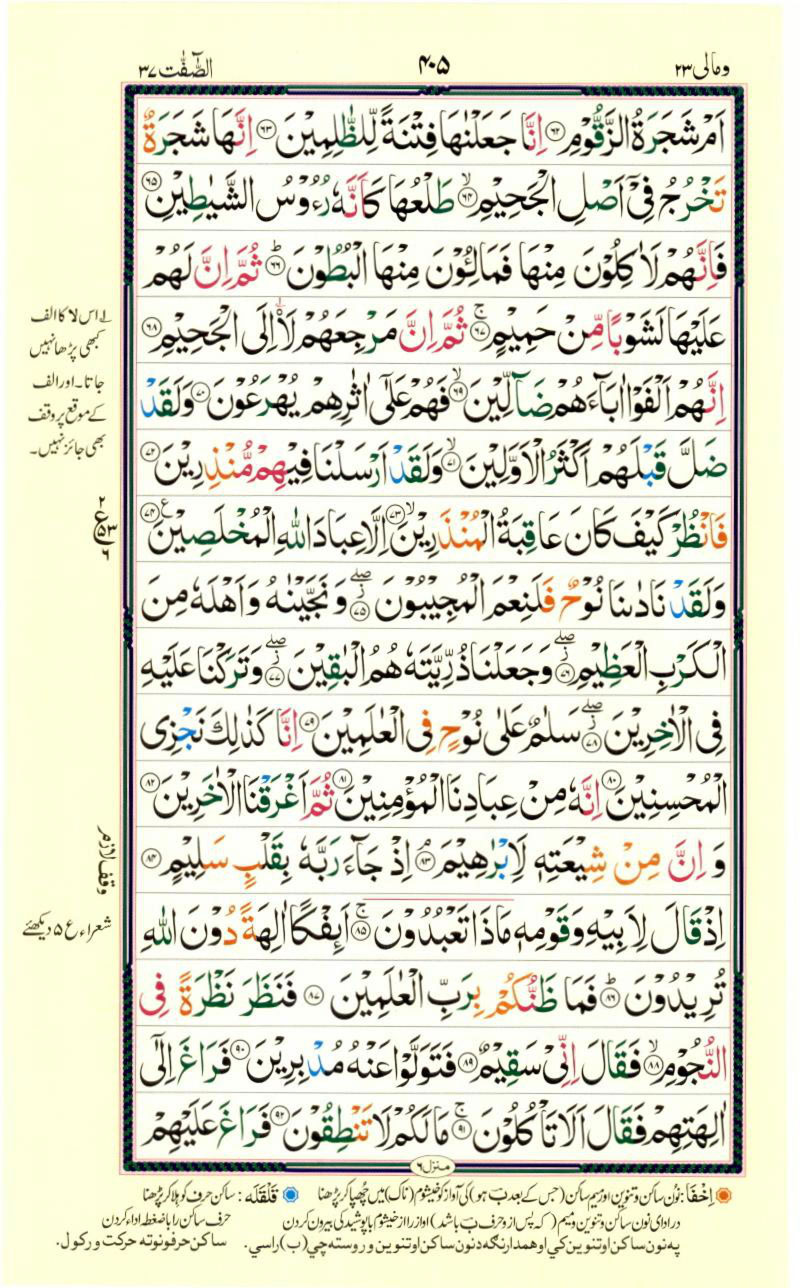 ومالی ۲۳ ۴۰۵ الصّٰٓفّٰت ۳۷
اَمْ شَجَرَةُ الزَّقُّوْمِ ﴿۶۲﴾ اِنَّا جَعَلْنٰهَا فِتْنَةً لِّلظّٰلِمِيْنَ ﴿۶۳﴾ اِنَّهَا شَجَرَةٌ
تَخْرُجُ فِىْٓ اَصْلِ الْجَحِيْمِ ۙ﴿۶۴﴾ طَلْعُهَا كَاَنَّهٗ رُءُوْسُ الشَّيٰطِيْنِ ﴿۶۵﴾
فَاِنَّهُمْ لَاٰكِلُوْنَ مِنْهَا فَمَالِـُٔوْنَ مِنْهَا الْبُطُوْنَ ؕ﴿۶۶﴾ ثُمَّ اِنَّ لَهُمْ
عَلَيْهَا لَشَوْبًا مِّنْ حَمِيْمٍ ۚ﴿۶۷﴾ ثُمَّ اِنَّ مَرْجِعَهُمْ لَا۠اِلَى الْجَحِيْمِ ﴿۶۸﴾
اِنَّهُمْ اَلْفَوْا اٰبَآءَهُمْ ضَآلِّيْنَ ۙ﴿۶۹﴾ فَهُمْ عَلٰٓى اٰثٰرِهِمْ يُهْرَعُوْنَ ﴿۷۰﴾ وَلَقَدْ
ضَلَّ قَبْلَهُمْ اَكْثَرُ الْاَوَّلِيْنَ ۙ﴿۷۱﴾ وَلَقَدْ اَرْسَلْنَا فِيْهِمْ مُّنْذِرِيْنَ ﴿۷۲﴾
فَانْظُرْ كَيْفَ كَانَ عَاقِبَةُ الْمُنْذَرِيْنَ ۙ﴿۷۳﴾ اِلَّا عِبَادَ اللّٰهِ الْمُخْلَصِيْنَ ﴿۷۴﴾ ع
وَلَقَدْ نَادٰىنَا نُوْحٌ فَلَنِعْمَ الْمُجِيْبُوْنَ ۖ﴿۷۵﴾ وَنَجَّيْنٰهُ وَاَهْلَهٗ مِنَ
الْكَرْبِ الْعَظِيْمِ ۖ﴿۷۶﴾ وَجَعَلْنَا ذُرِّيَّتَهٗ هُمُ الْبٰقِيْنَ ۖ﴿۷۷﴾ وَتَرَكْنَا عَلَيْهِ
فِى الْاٰخِرِيْنَ ۖ﴿۷۸﴾ سَلٰمٌ عَلٰى نُوْحٍ فِى الْعٰلَمِيْنَ ﴿۷۹﴾ اِنَّا كَذٰلِكَ نَجْزِى
الْمُحْسِنِيْنَ ﴿۸۰﴾ اِنَّهٗ مِنْ عِبَادِنَا الْمُؤْمِنِيْنَ ﴿۸۱﴾ ثُمَّ اَغْرَقْنَا الْاٰخَرِيْنَ ﴿۸۲﴾
وَاِنَّ مِنْ شِيْعَتِهٖ لَاِبْرٰهِيْمَ ۘ﴿۸۳﴾ اِذْ جَآءَ رَبَّهٗ بِقَلْبٍ سَلِيْمٍ ﴿۸۴﴾
اِذْ قَالَ لِاَبِيْهِ وَقَوْمِهٖ مَاذَا تَعْبُدُوْنَ ۚ﴿۸۵﴾ اَئِفْكًا اٰلِهَةً دُوْنَ اللّٰهِ
تُرِيْدُوْنَ ؕ﴿۸۶﴾ فَمَا ظَنُّكُمْ بِرَبِّ الْعٰلَمِيْنَ ﴿۸۷﴾ فَنَظَرَ نَظْرَةً فِى
النُّجُوْمِ ۙ﴿۸۸﴾ فَقَالَ اِنِّىْ سَقِيْمٌ ﴿۸۹﴾ فَتَوَلَّوْا عَنْهُ مُدْبِرِيْنَ ﴿۹۰﴾ فَرَاغَ اِلٰٓى
اٰلِهَتِهِمْ فَقَالَ اَلَا تَاْكُلُوْنَ ۚ﴿۹۱﴾ مَا لَكُمْ لَا تَنْطِقُوْنَ ﴿۹۲﴾ فَرَاغَ عَلَيْهِمْ
منزل ۶
اس لا کا الف
کبھی پڑھا نہیں
جاتا۔ اور الف
کے موقع پر وقف
بھی جائز نہیں۔
۲
ع ۵۳
۶
وقف لازم
شعراء ع ۵ دیکھئے
اِخْفَا: نون ساکن و تنوین اور میم ساکن (جس کے بعد ب ہو) کی آواز کو خیشوم (ناک) میں چُھپا کر پڑھنا قَلْقَلَہ: ساکن حرف کو ہلا کر پڑھنا
در ادای نون ساکن و تنوین و میم (که پس از و حرف ب باشد) آواز را از خیشوم با پوشیدگی بیرون کردن حرف ساکن را با ضغطه اداء کردن
په نون ساکن او تنوین کي او همدارنګه د نون ساکن او تنوین و روسته چي (ب) راسي. ساکن حرفونو ته حرکت ورکول.